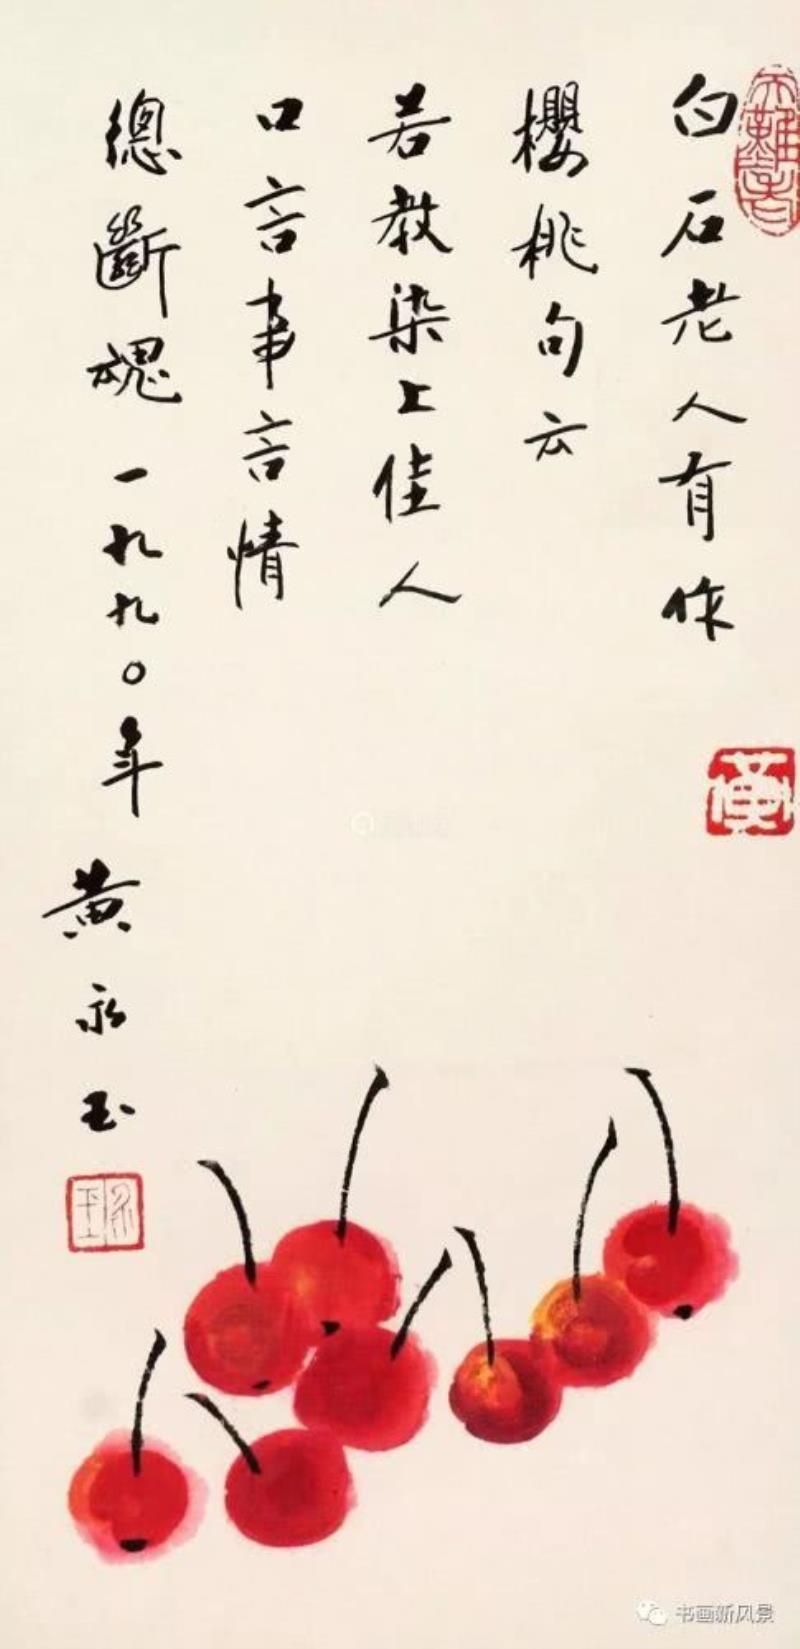 白石老人有作
櫻桃句云
若教染上佳人
口言事言情
總斷魂一九九〇年黄永玉
黃
永玉
书画新风景